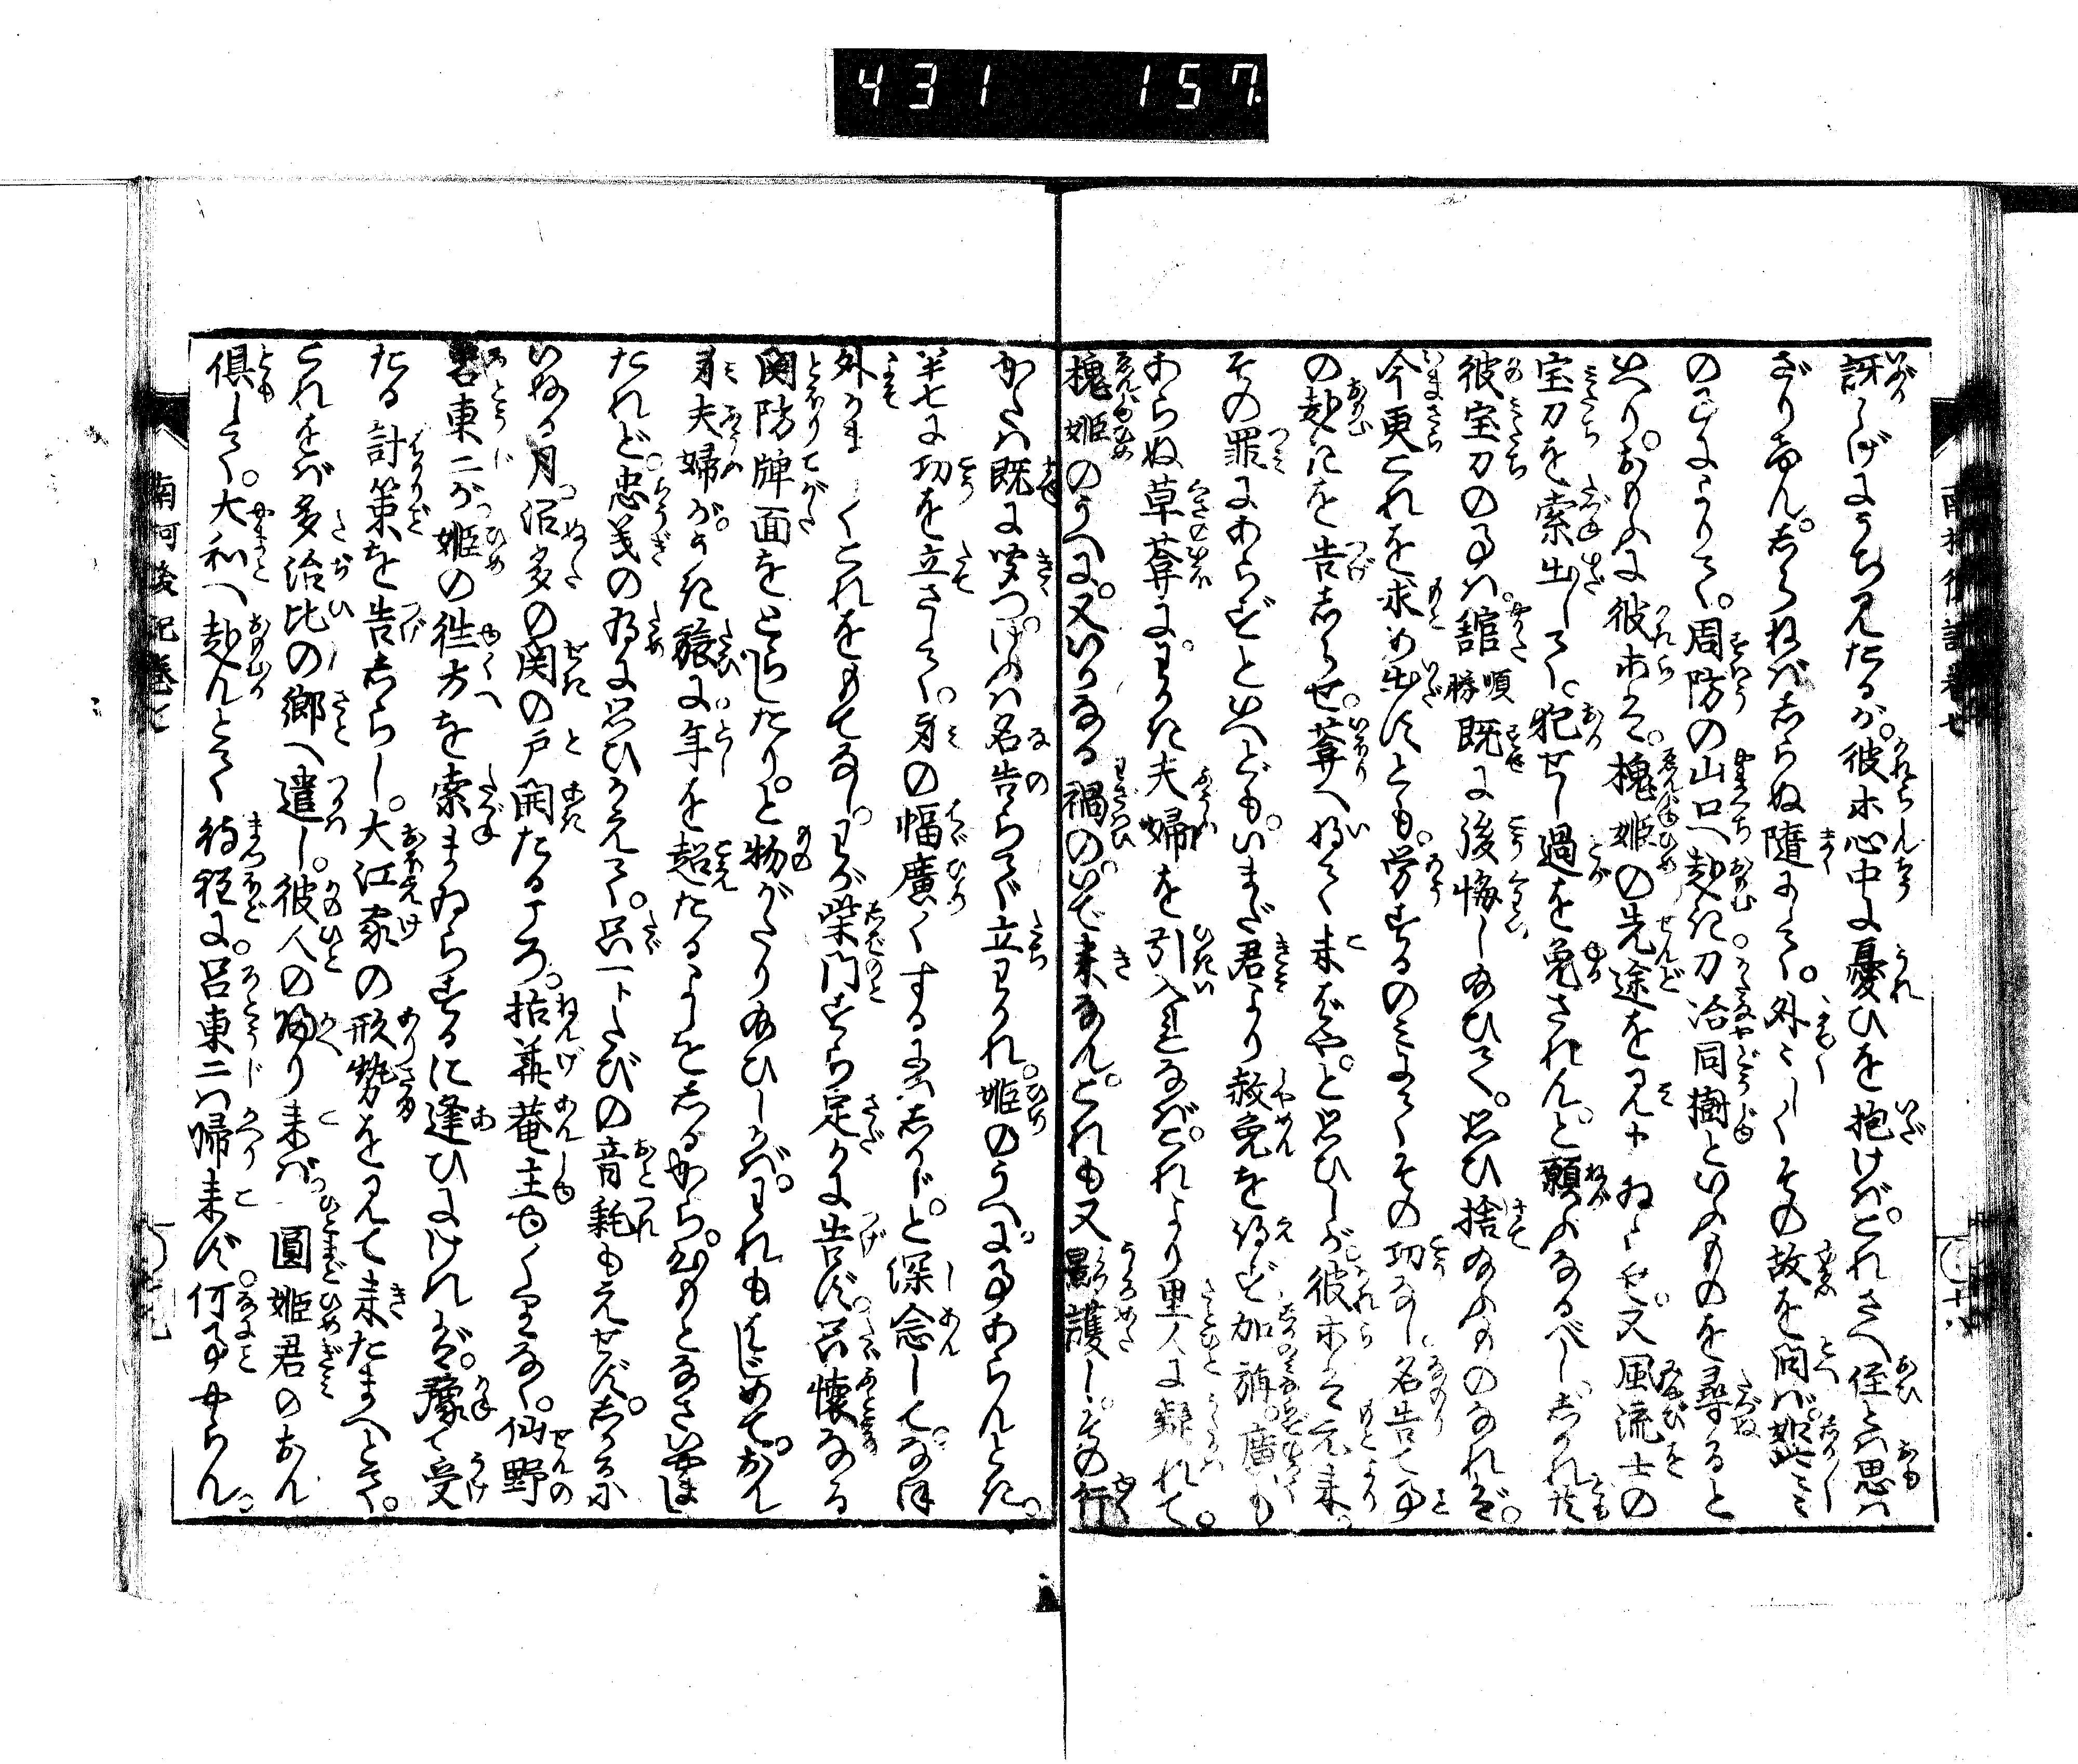 431 157
訝しげにうち見たるが。彼ホ心中に憂ひを抱けば。これさへ侄とは思は
ざりけん。しらねばしらぬ随にて。外々しくその故を問ば。姫
のことによりて。周防の山口へ赴き刀冶同樹といふものを尋ると
いへり。おもふに彼ホは。槐姫の先途を見
宝刀を索出して。犯せし過を免されんと願ふなるべし。しかれ共
彼宝刀の事は。舘順勝既に後悔し給ひて。思ひ捨給ふものなれば。
今更これを求め出すとも。労するのみにてその功なし。名告て事
の趣きを告しらせ。菴へ将て来ばや。と思ひしが。彼ホは元来。
その罪にあらずといへども。いまだ君より赦免を得ず。加旃。廣くも
あらぬ草菴に。わかき夫婦を引入れなば。これより里人に疑れて。
槐姫のうへに。又いかなる禍の。いで来なん。これも又影護し。その行
かたは既に聞つ。けふは名告らで立わかれ。姫のうへに事あらんとき。
半七に功を立さして。身の幅廣くするにはしかじ。と深念して。なほ
外々しくこれをもてなし。わが柴門すら定かに告ず。只懐なる
関防牌面をとらしたり。と物がたり給ひしかば。われもはじめて。おん
身夫婦が。うき旅に年を超たるよしをしるから。
たれど。忠義の為に思ひかえて。只一トたびの音耗もえせず。しかるに
いぬる月沼多の関の戸開たるころ。拈華菴主ゆくりなく。仙野
呂東二が姫の徃方を索まゐらするに逢ひにければ。豫て受
たる計策を告しらし。大江家の形勢を見て来たまへとて。
これをば多治比の郷へ遣し。彼人の帰り来ば。圓姫君のおん
倶して。大和へ赴んとて待程に。呂東二は帰来ず。何事やらん。
南柯後記巻七